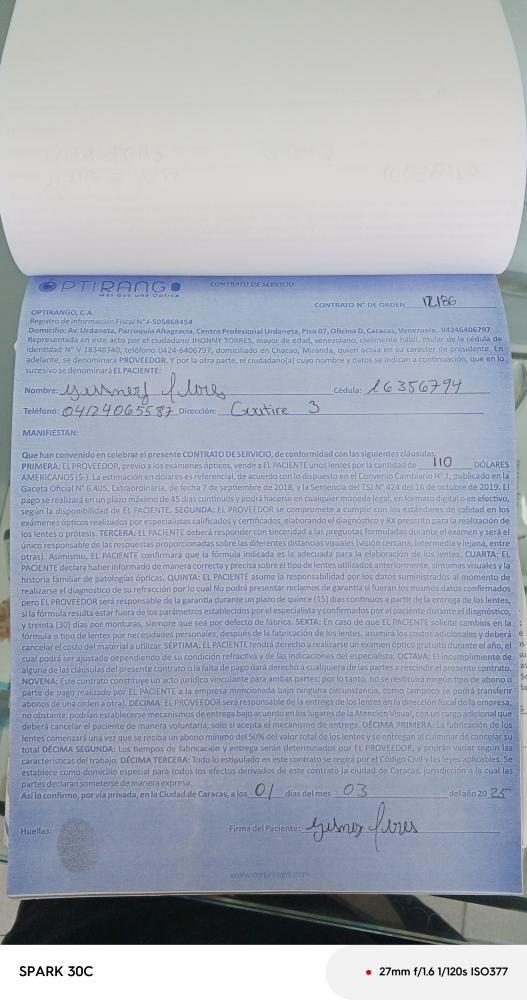 OPTIRANGO
Más que una Óptica
CONTRATO DE SERVICIO
CONTRATO N° DE ORDEN 12186
OPTIRANGO, C.A.
Registro de Información Fiscal N° J-505868454
Domicilio: Av. Urdaneta, Parroquia Altagracia, Centro Profesional Urdaneta, Piso 07, Oficina D, Caracas, Venezuela. 04246406797
Representada en este acto por el ciudadano JHONNY TORRES, mayor de edad, venezolano, civilmente hábil, titular de la cédula de
identidad N° V-18348340, teléfono 0424-6406797, domiciliado en Chacao, Miranda, quien actúa en su carácter de presidente. En
adelante, se denominará PROVEEDOR. Y por la otra parte, el ciudadano(a) cuyo nombre y datos se indican a continuación, que en lo
sucesivo se denominará EL PACIENTE:
Nombre: flores Cédula: 16356794
Teléfono: 04124065587 Dirección: Guatire 3
MANIFIESTAN:
Que han convenido en celebrar el presente CONTRATO DE SERVICIO, de conformidad con las siguientes cláusulas:
PRIMERA: EL PROVEEDOR, previo a los exámenes ópticos, vende a EL PACIENTE unos lentes por la cantidad de 110 DÓLARES
AMERICANOS ($-). La estimación en dólares es referencial, de acuerdo con lo dispuesto en el Convenio Cambiario N° 1, publicado en la
Gaceta Oficial N° 6.405, Extraordinaria, de fecha 7 de septiembre de 2018, y la Sentencia del TSJ N° 424 del 16 de octubre de 2019. El
pago se realizará en un plazo máximo de 45 días continuos y podrá hacerse en cualquier moneda legal, en formato digital o en efectivo,
según la disponibilidad de EL PACIENTE. SEGUNDA: EL PROVEEDOR se compromete a cumplir con los estándares de calidad en los
exámenes ópticos realizados por especialistas calificados y certificados, elaborando el diagnóstico y RX prescrito para la realización de
los lentes o prótesis. TERCERA: EL PACIENTE deberá responder con sinceridad a las preguntas formuladas durante el examen y será el
único responsable de las respuestas proporcionadas sobre las diferentes distancias visuales (visión cercana, intermedia y lejana, entre
otras). Asimismo, EL PACIENTE confirmará que la fórmula indicada es la adecuada para la elaboración de los lentes. CUARTA: EL
PACIENTE declara haber informado de manera correcta y precisa sobre el tipo de lentes utilizados anteriormente, síntomas visuales y la
historia familiar de patologías ópticas. QUINTA: EL PACIENTE asume la responsabilidad por los datos suministrados al momento de
realizarse el diagnostico de su refracción por lo cual No podrá presentar reclamos de garantía si fueran los mismos datos confirmados
pero EL PROVEEDOR será responsable de la garantía durante un plazo de quince (15) días continuos a partir de la entrega de los lentes,
si la fórmula resulta estar fuera de los parámetros establecidos por el especialista y confirmados por el paciente durante el diagnóstico,
y treinta (30) días por monturas, siempre que sea por defecto de fábrica. SEXTA: En caso de que EL PACIENTE solicite cambios en la
fórmula o tipo de lentes por necesidades personales, después de la fabricación de los lentes, asumirá los costos adicionales y deberá
cancelar el costo del material a utilizar. SÉPTIMA: EL PACIENTE tendrá derecho a realizarse un examen óptico gratuito durante el año, el
cual podrá ser ajustado dependiendo de su condición refractiva y de las indicaciones del especialista. OCTAVA: El incumplimiento de
alguna de las cláusulas del presente contrato o la falta de pago dará derecho a cualquiera de las partes a rescindir el presente contrato.
NOVENA: Este contrato constituye un acto jurídico vinculante para ambas partes; por lo tanto, no se restituirá ningún tipo de abono o
parte de pago realizado por EL PACIENTE a la empresa mencionada bajo ninguna circunstancia, como tampoco se podrá transferir
abonos de una orden a otra). DÉCIMA: EL PROVEEDOR será responsable de la entrega de los lentes en la dirección fiscal de la empresa;
no obstante, podrían establecerse mecanismos de entrega bajo acuerdo en los lugares de la Atención Visual, con un cargo adicional que
deberá cancelar el paciente de manera voluntaria, solo si acepta el mecanismo de entrega. DÉCIMA PRIMERA: La fabricación de los
lentes comenzará una vez que se reciba un abono mínimo del 50% del valor total de los lentes y se entregan al culminar de cancelar su
total DÉCIMA SEGUNDA: Los tiempos de fabricación y entrega serán determinados por EL PROVEEDOR, y podrán variar según las
características del trabajo. DÉCIMA TERCERA: Todo lo estipulado en este contrato se regirá por el Código Civil y las leyes aplicables. Se
establece como domicilio especial para todos los efectos derivados de este contrato la ciudad de Caracas, jurisdicción a la cual las
partes declaran someterse de manera expresa.
Así lo confirmo, por vía privada, en la Ciudad de Caracas, a los 01 días del mes 03 del año 2025
Huellas: Firma del Paciente: flores
www.optirango.com
SPARK 30C
27mm f/1.6 1/120s ISO377